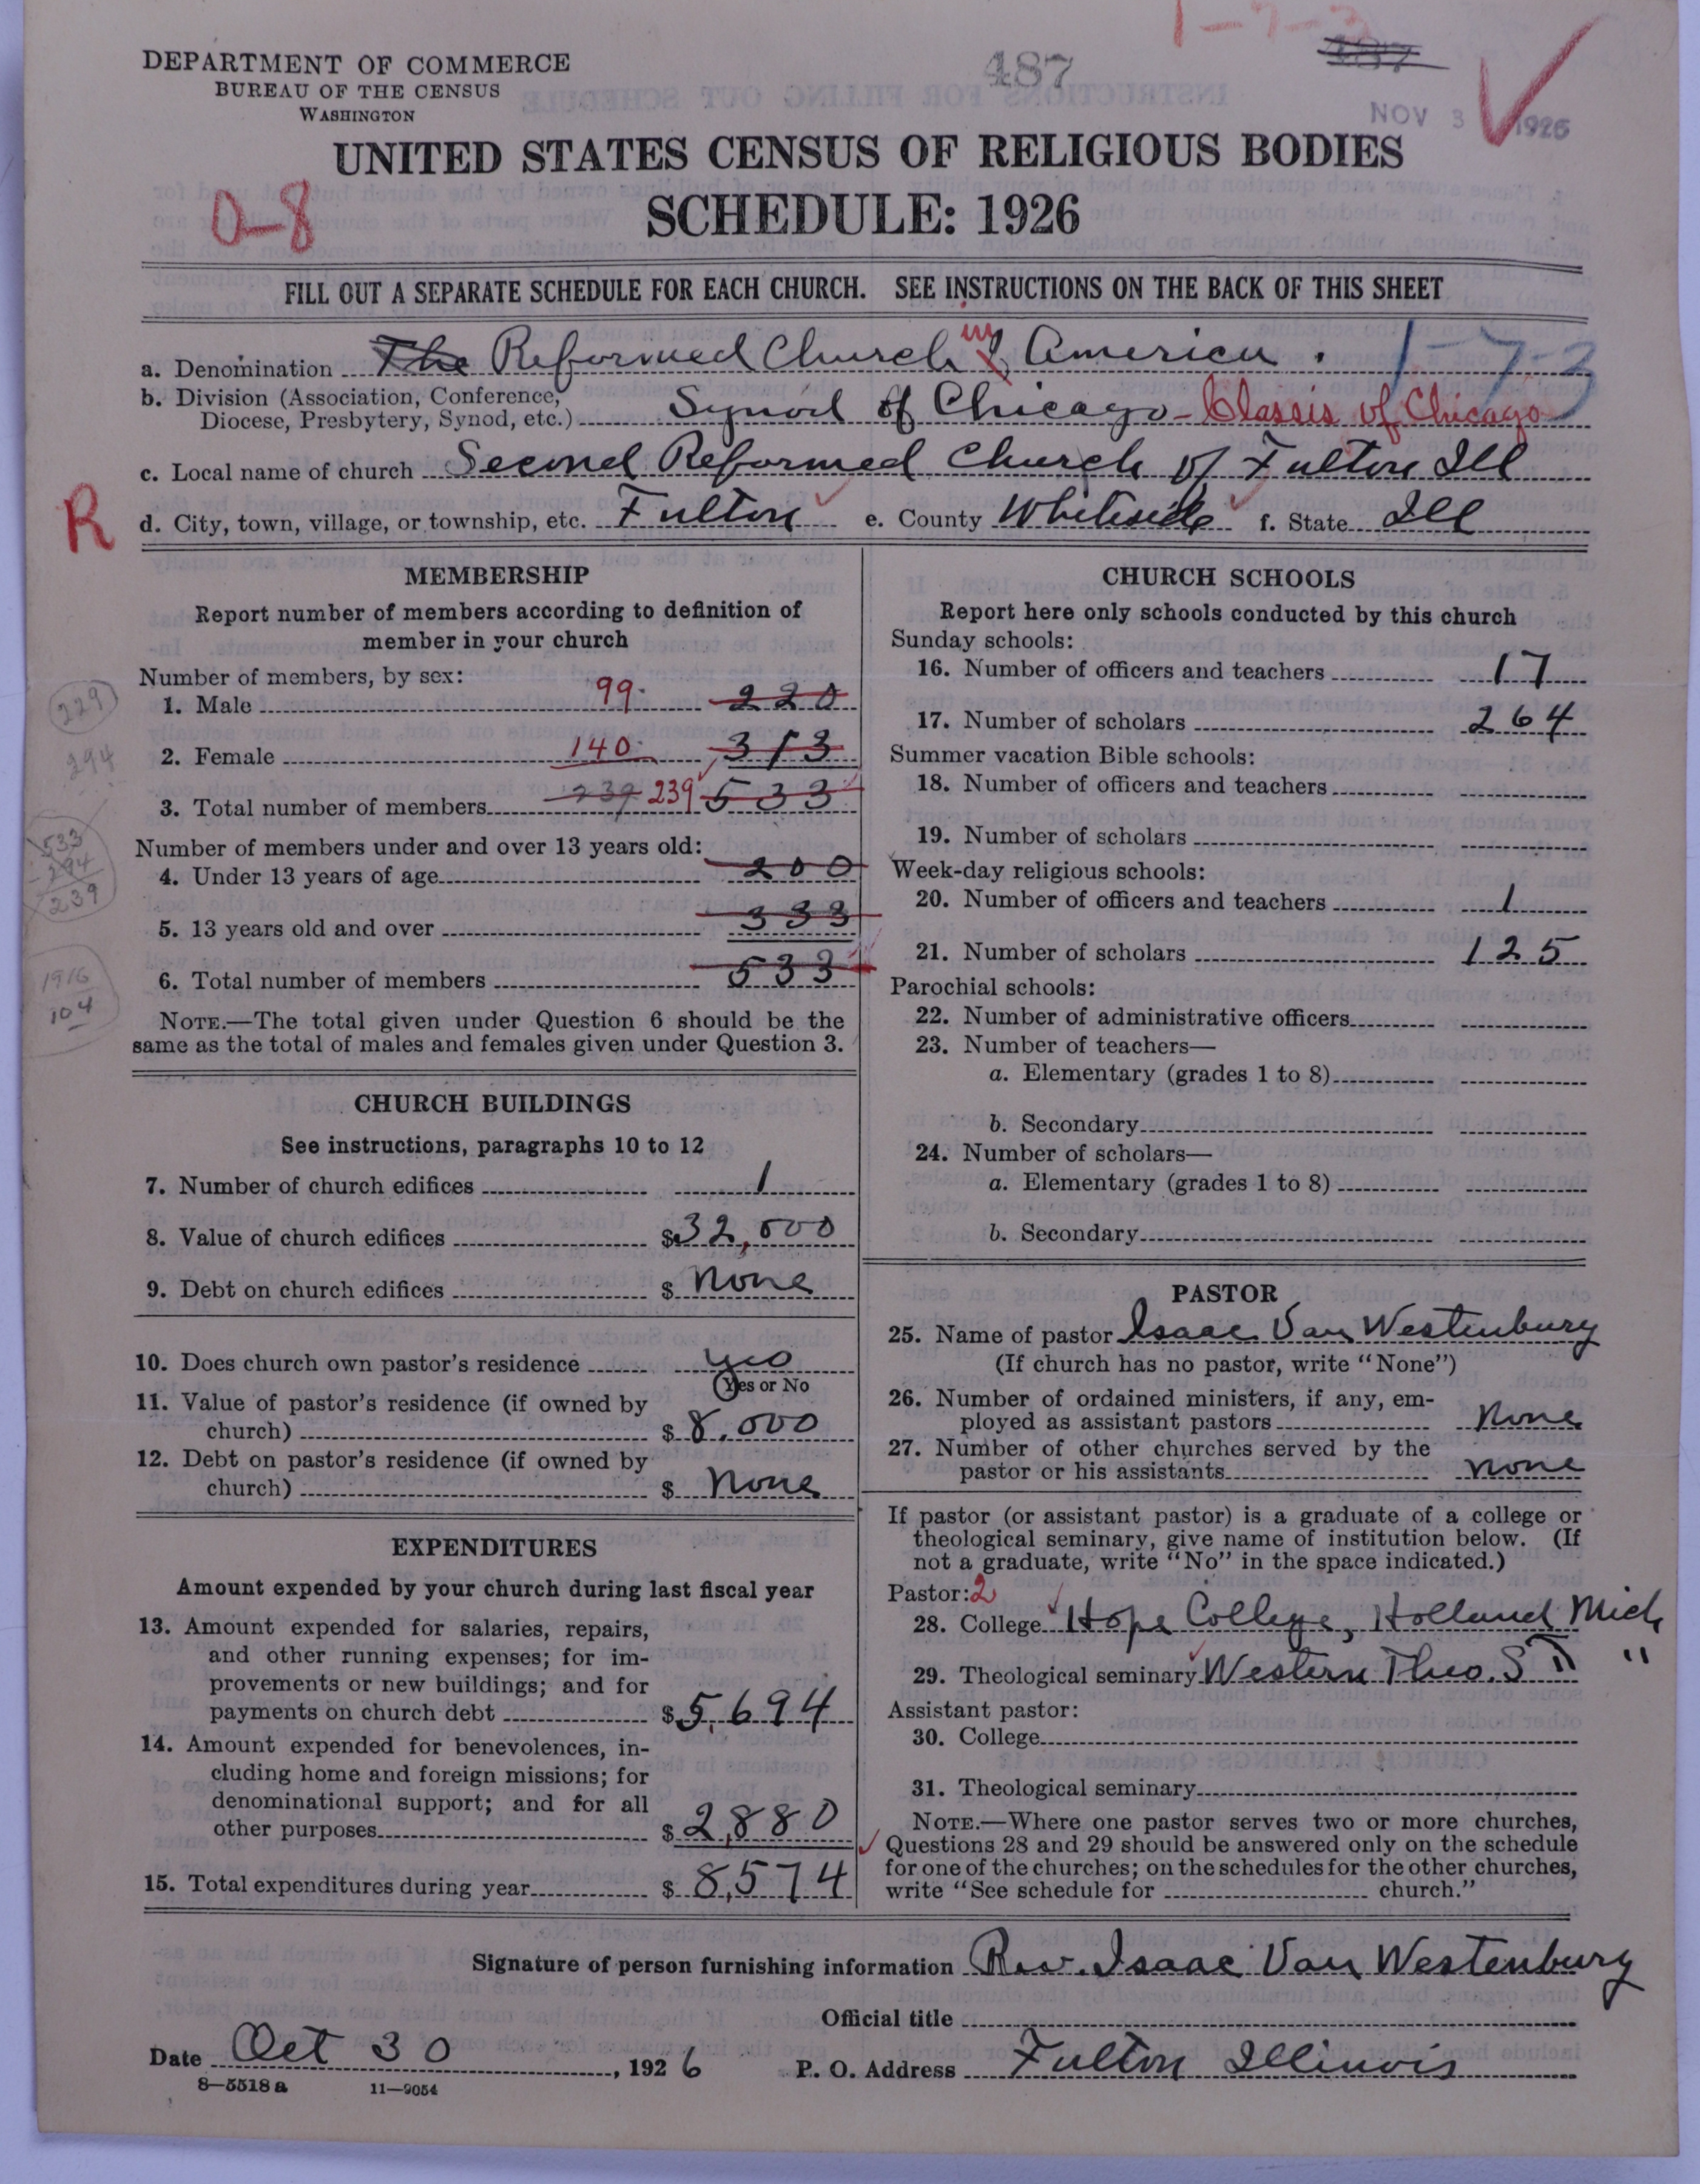 1-7-3
487
487
NOV 3 1926
DEPARTMENT OF COMMERCE
BUREAU OF THE CENSUS
WASHINGTON
UNITED STATES CENSUS OF RELIGIOUS BODIES
SCHEDULE: 1926
0-8
FILL OUT A SEPARATE SCHEDULE FOR EACH CHURCH. SEE INSTRUCTIONS ON THE BACK OF THIS SHEET
a. Denomination The Reformed Church in America. 1-7-3
b. Division (Association, Conference,
Diocese, Presbytery, Synod, etc.) Synod of Chicago - Classis of Chicago
c. Local name of church Second Reformed Church of Fulton Ill
R
d. City, town, village, or township, etc. Fulton e. County Whiteside f. State Ill
MEMBERSHIP
Report number of members according to definition of
member in your church
Number of members, by sex:
1. Male 99. 220
229
2. Female 140. 313
294
3. Total number of members 239 239 533
533
294
239
Number of members under and over 13 years old:
4. Under 13 years of age 200
5. 13 years old and over 333
6. Total number of members 533
1916
104
NOTE.—The total given under Question 6 should be the
same as the total of males and females given under Question 3.
CHURCH BUILDINGS
See instructions, paragraphs 10 to 12
7. Number of church edifices 1
8. Value of church edifices $32,000
9. Debt on church edifices $ None
10. Does church own pastor's residence yes
Yes or No
11. Value of pastor's residence (if owned by
church) $ 8,000
12. Debt on pastor's residence (if owned by
church) $ None
EXPENDITURES
Amount expended by your church during last fiscal year
13. Amount expended for salaries, repairs,
and other running expenses; for im-
provements or new buildings; and for
payments on church debt $5,694
14. Amount expended for benevolences, in-
cluding home and foreign missions; for
denominational support; and for all
other purposes $2,880
15. Total expenditures during year $8,574
CHURCH SCHOOLS
Report here only schools conducted by this church
Sunday schools:
16. Number of officers and teachers 17
17. Number of scholars 264
Summer vacation Bible schools:
18. Number of officers and teachers
19. Number of scholars
Week-day religious schools:
20. Number of officers and teachers 1
21. Number of scholars 125
Parochial schools:
22. Number of administrative officers
23. Number of teachers—
a. Elementary (grades 1 to 8)
b. Secondary
24. Number of scholars—
a. Elementary (grades 1 to 8)
b. Secondary
PASTOR
25. Name of pastor Isaac Van Westenburg
(If church has no pastor, write "None")
26. Number of ordained ministers, if any, em-
ployed as assistant pastors None
27. Number of other churches served by the
pastor or his assistants none
If pastor (or assistant pastor) is a graduate of a college or
theological seminary, give name of institution below. (If
not a graduate, write "No" in the space indicated.)
Pastor: 2
28. College Hope College, Holland Mich
29. Theological seminary Western Theo. S " "
Assistant pastor:
30. College
31. Theological seminary
NOTE.—Where one pastor serves two or more churches,
Questions 28 and 29 should be answered only on the schedule
for one of the churches; on the schedules for the other churches,
write "See schedule for church."
Signature of person furnishing information Rev. Isaac Van Westenburg
Official title
Date Oct 30, 1926 P. O. Address Fulton Illinois
8—5518 a 11—9054